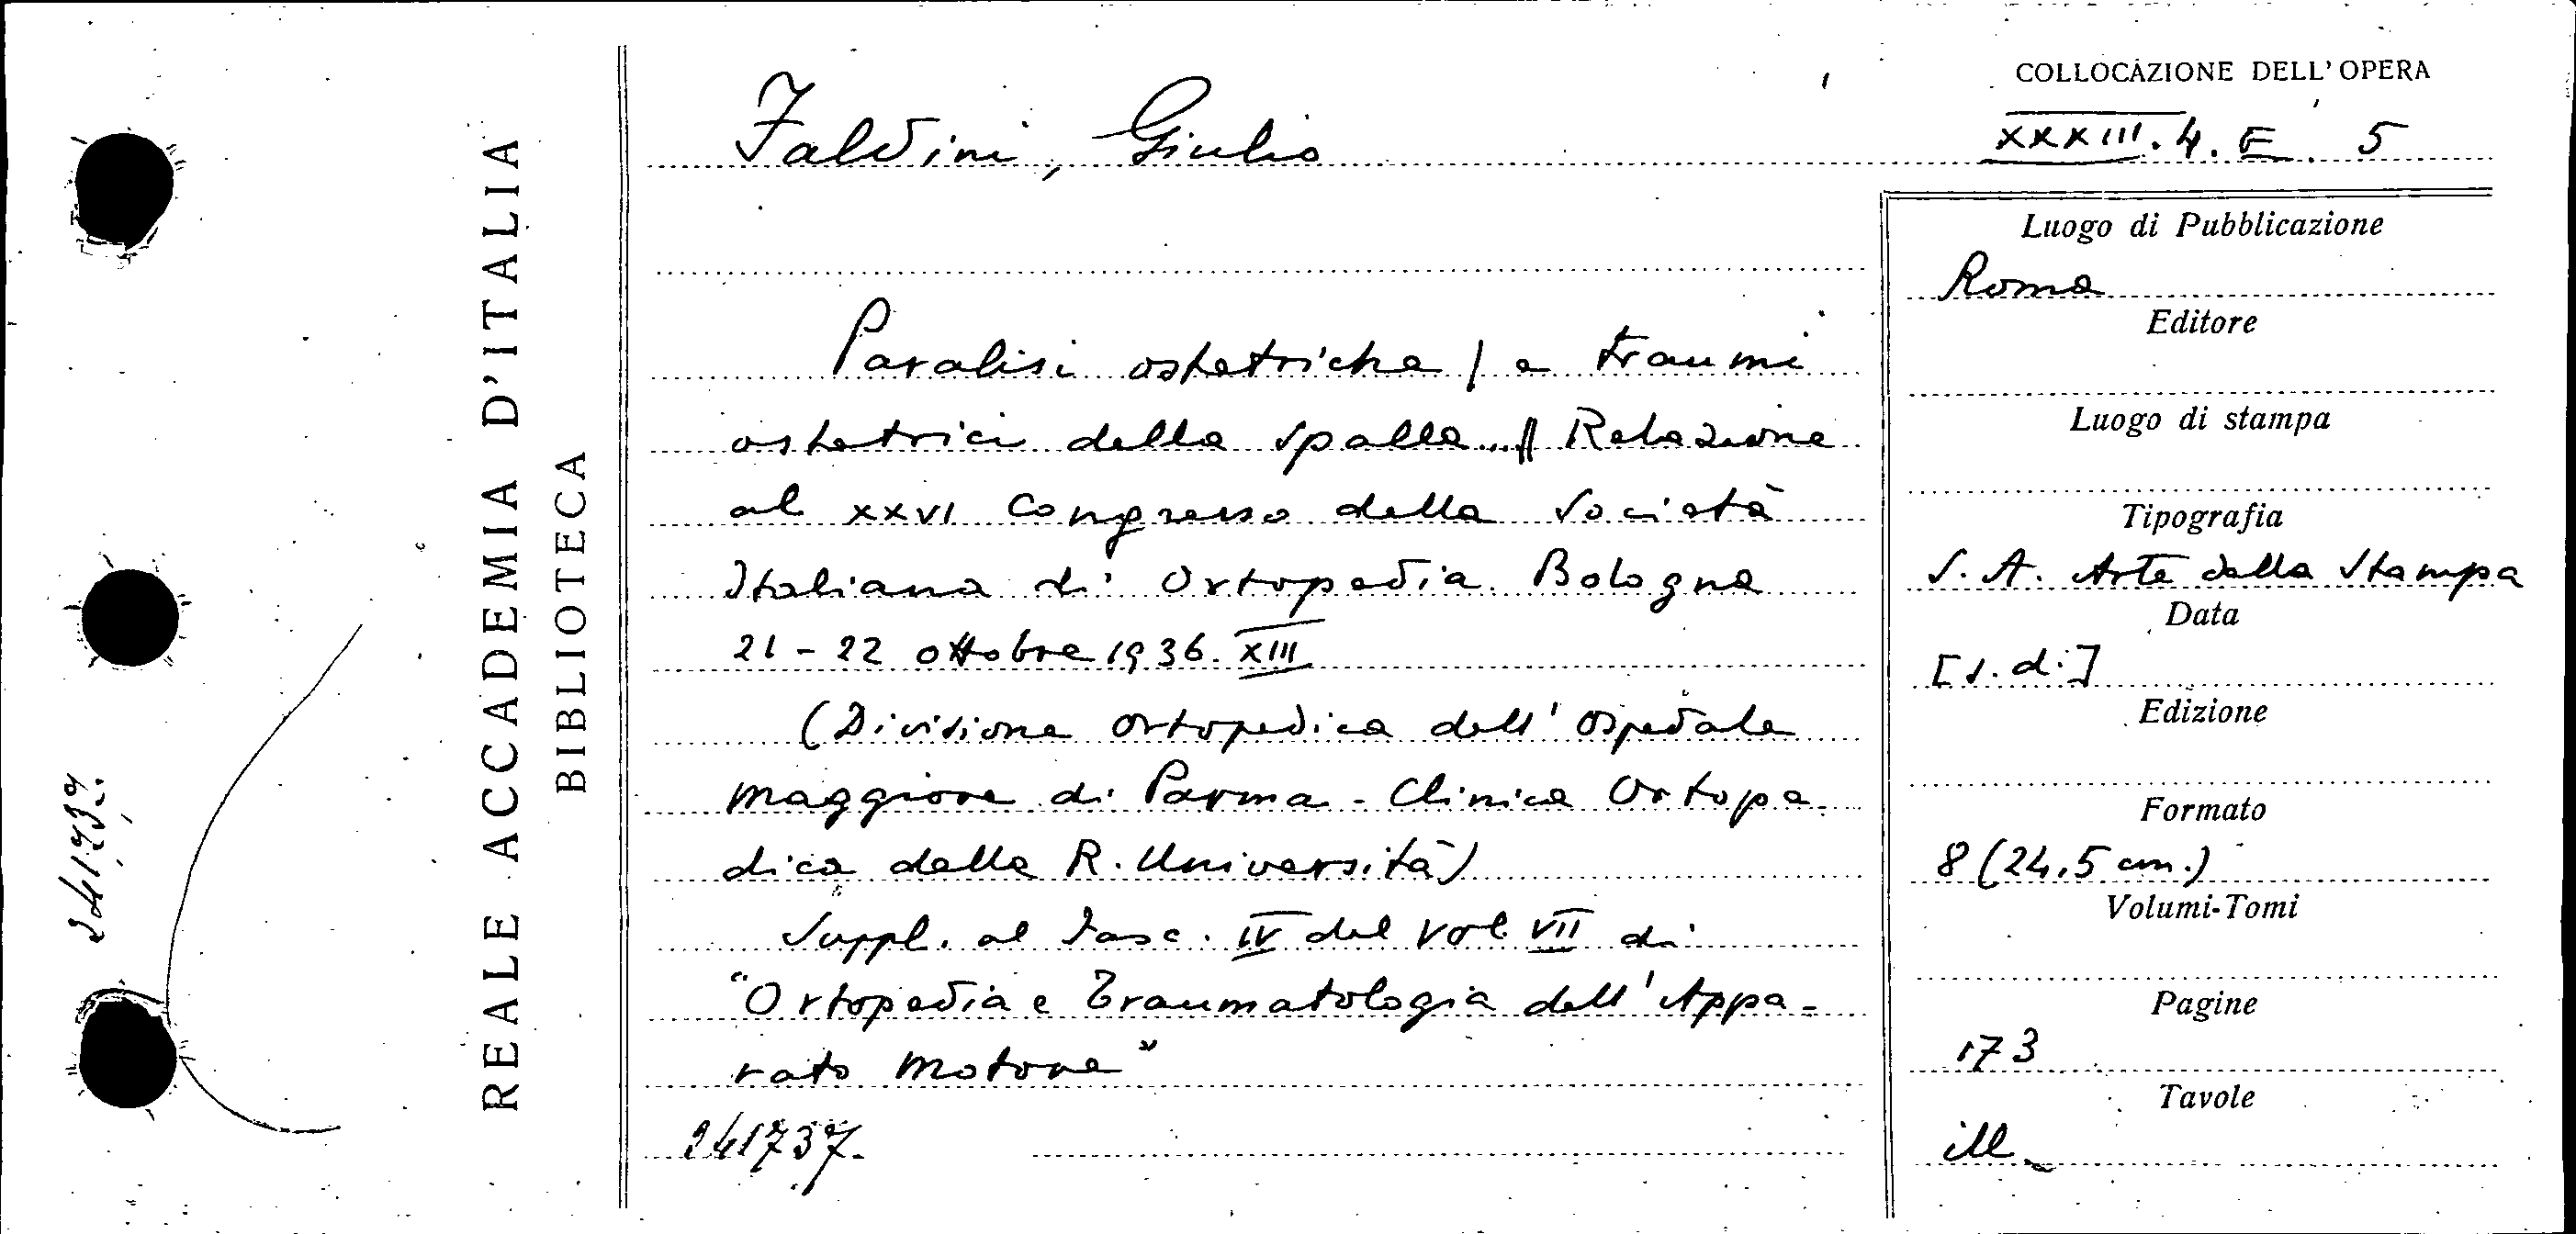 REALE ACCADEMIA D'ITALIA
BIBLIOTECA
241737.
Faldini, Giulio
COLLOCAZIONE DELL'OPERA
XXXIII. 4. E. 5
Paralisi ostetriche / e traumi
ostetrici della spalla... // Relazione
al XXVI Congresso della Società
Italiana di Ortopedia Bologna
21 - 22 ottobre 1936. XIII
(Divisione Ortopedica dell'Ospedale
Maggiore di Parma - Clinica Ortope-
dica della R. Università)
Suppl. al Fasc. IV del Vol. VII di
"Ortopedia e Traumatologia dell'Appa-
rato Motore"
241737.
Luogo di Pubblicazione
Roma
Editore
Luogo di stampa
Tipografia
S. A. Arte della Stampa
Data
[s. d.]
Edizione
Formato
8 (24,5 cm.)
Volumi-Tomi
Pagine
173
Tavole
ill.